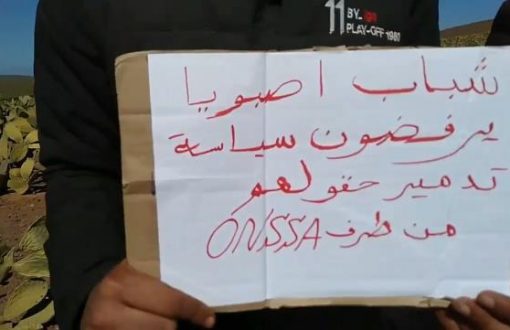 11 BY
PLAY-OFF 1980
شباب اصبويا
يرفضون سياسة
تدمير حقولهم
من طرف ONSSA